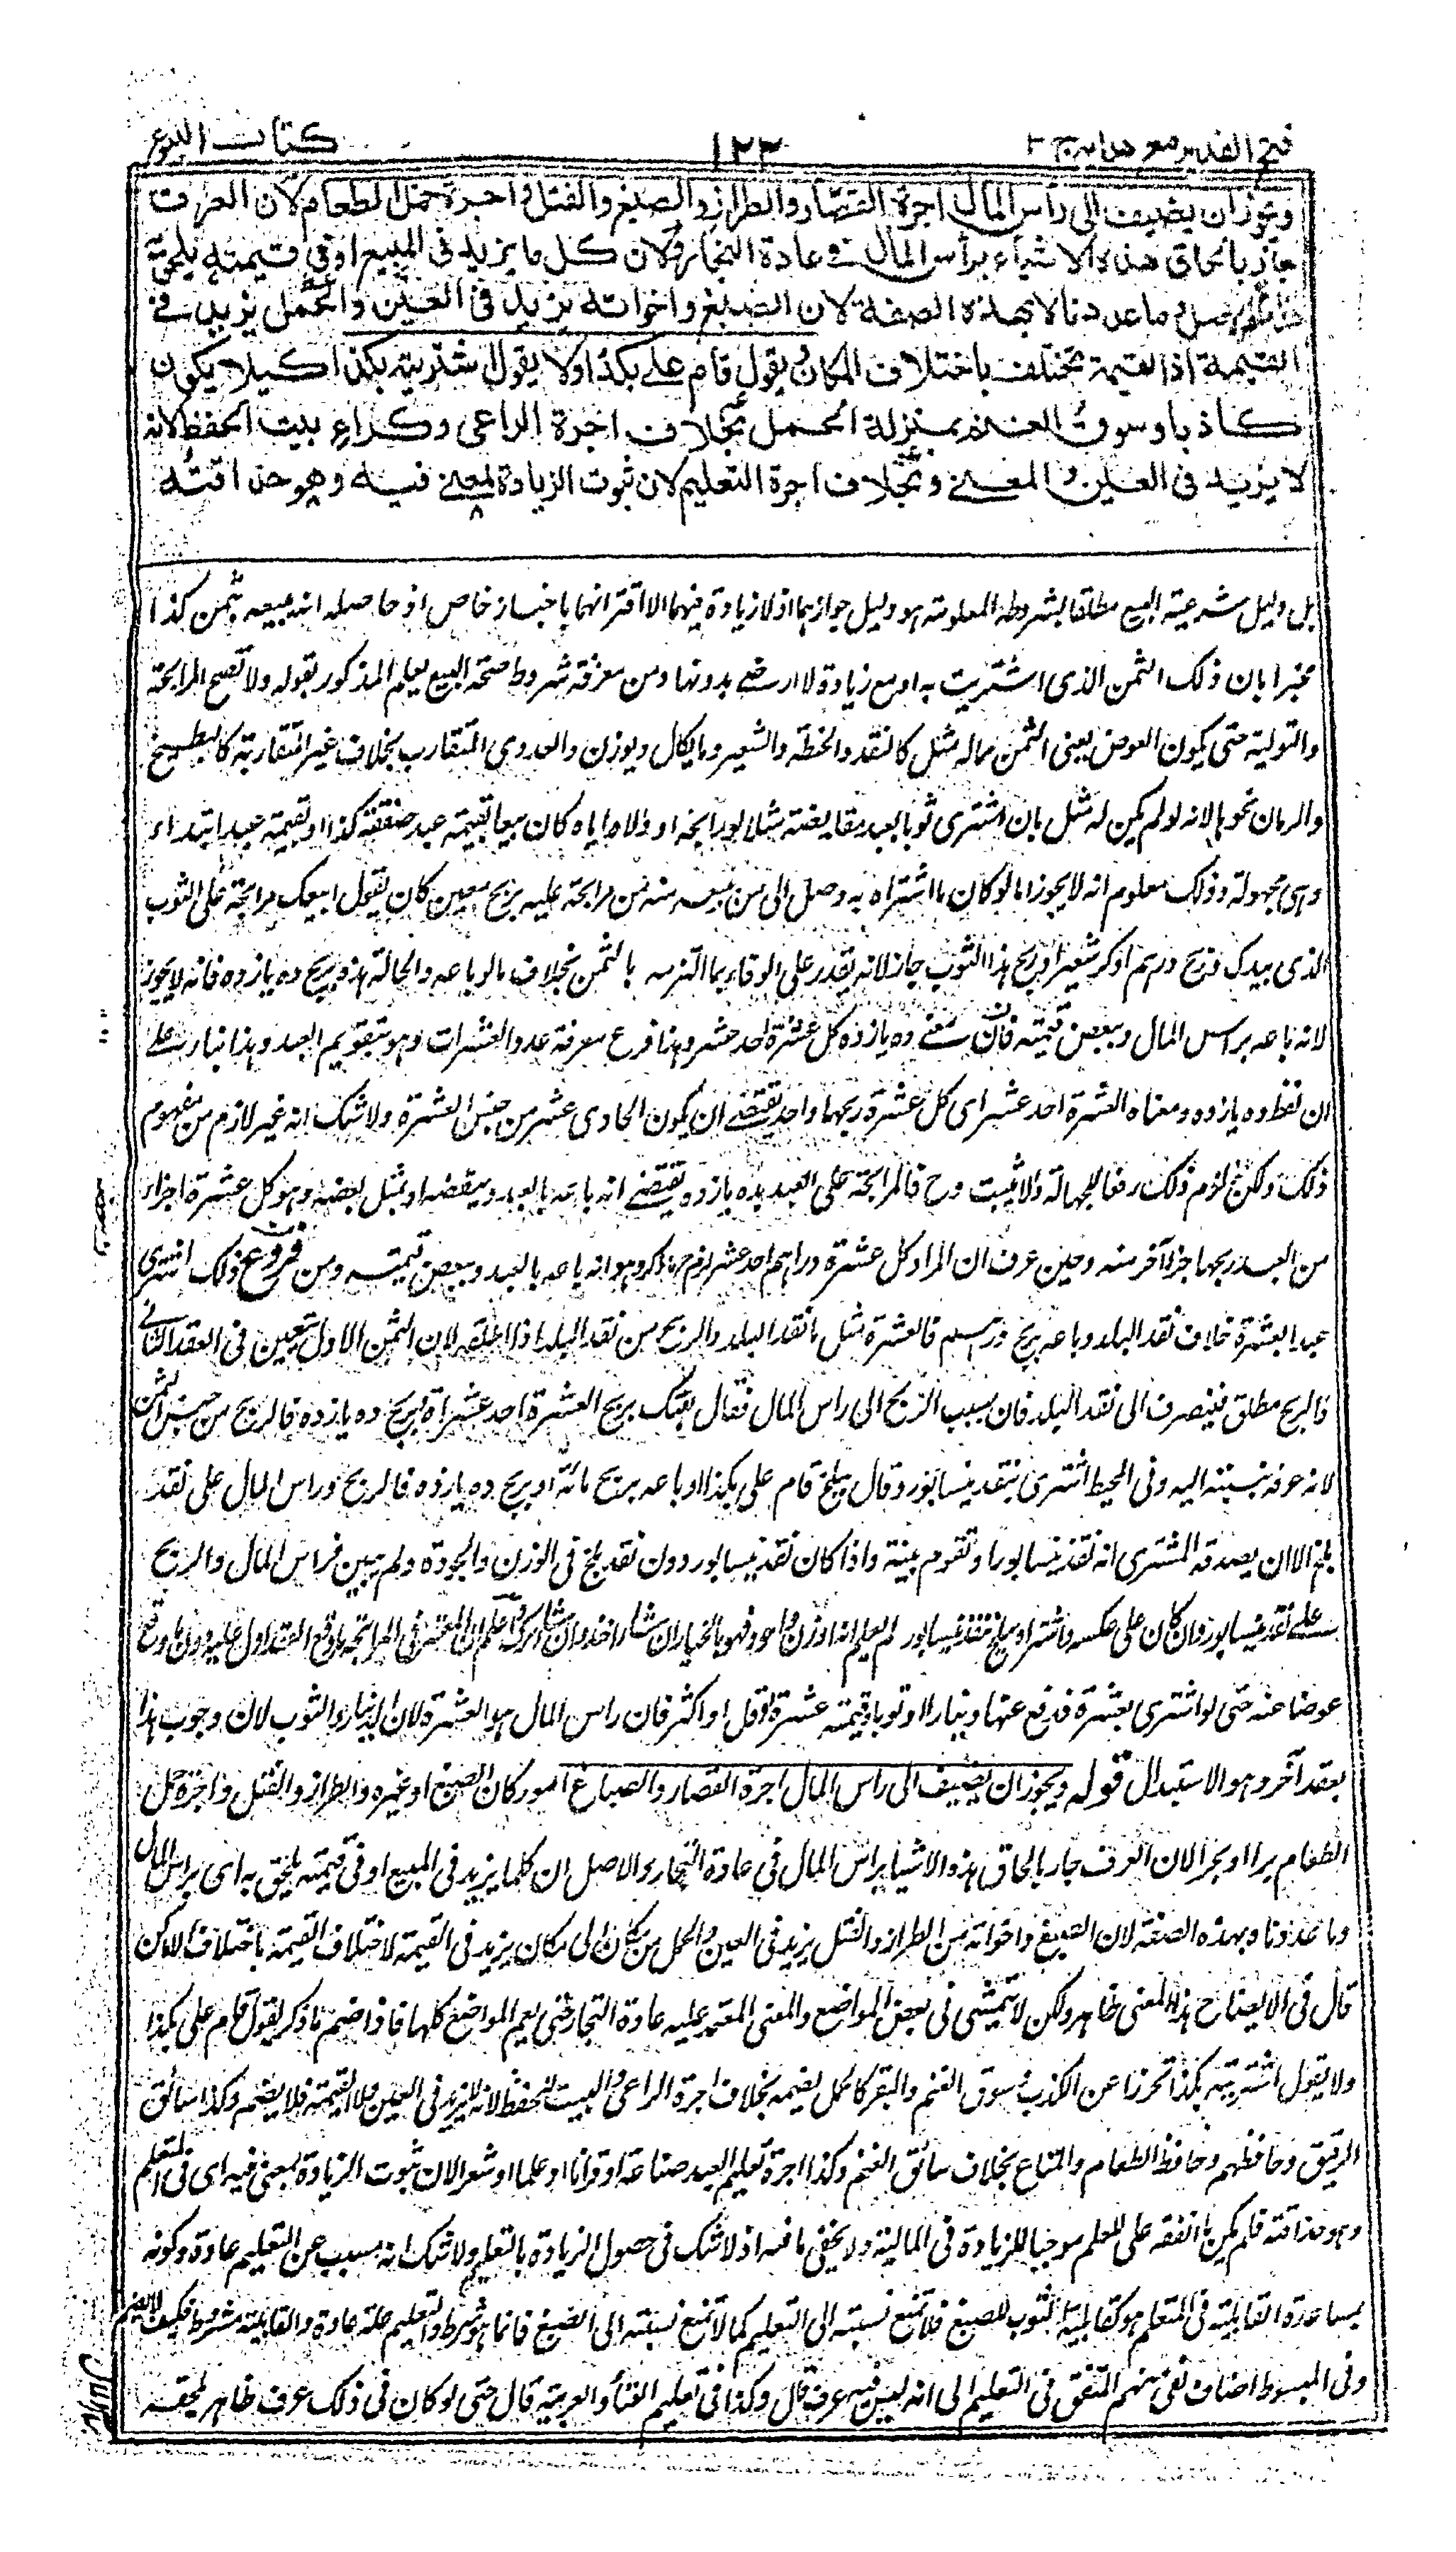 فتح القدير مع هدايه ج ٣
١٢٣
كتاب البيوع
ويجوز ان يضيف الى رأس المال اجرة القصار والطراز والصبغ والفتل واجرة حمل الطعام لان العرف
جار بالحاق هذه الاشياء برأس المال فى عادة التجار ولان كل ما يزيد فى المبيع او فى قيمته يلحق به
هذا هو الاصل وما عددنا لا بهذه الصفة لان الصبغ واخواته يزيد فى العين والحمل يزيد فى
القيمة اذ القيمة تختلف باختلاف المكان ويقول قام على بكذا ولا يقول اشتريته بكذا كيلا يكون
كاذبا وسوق الغنم بمنزلة الحمل بخلاف اجرة الراعى وكراء بيت الحفظ لانه
لا يزيد فى العين والمعنى وبخلاف اجرة التعليم لان ثبوت الزيادة لمعنى فيه وهو حذاقته
بل دليل شرعية البيع مطلقا بشروطه المعلومة هو دليل جوازهما اذ لا زيادة فيهما الا اقترانهما باخبار خاص اذ حاصله انه يبيعه بثمن كذا
مخبرا بان ذلك الثمن الذى اشتريت به او مع زيادة لا ارضى بدونها ومن معرفة شروط صحة البيع يعلم المذكور بقوله ولا تصح المرابحة
والتولية حتى يكون العوض يعنى الثمن مما له مثل كالنقد والحنطة والشعير وما يكال ويوزن والعددى المتقارب بخلاف غير المتقاربة كالبطيخ
والرمان نحوها لانه لو لم يكن له مثل بان اشترى ثوبا بعبد مقايضة مثلا لو رابحه او ولاه اياه كان بيعا بقيمة عبد صفته كذا او بقيمة عبد ابتداء
وهى مجهولة وذلك معلوم انه لا يجوز اما لو كان ما اشتراه به وصل الى من يبيعه منه من مرابحة عليه بربح معين كان يقول ابيعك مرابحة على الثوب
الذى بيدك وربح درهم او كر شعير او ربح هذا الثوب جاز لانه يقدر على الوفاء بما التزمه بالثمن بخلاف ما لو باعه والحالة هذه بربح ده يازده فانه لا يجوز
لانه باعه براس المال وببعض قيمته فان معنى ده يازده كل عشرة احد عشر وهذا فرع معرفة عدد العشرات وهو بتقويم العبد وهذا بناء على
ان لفظ ده يازده ومعناه العشرة احد عشر اى كل عشرة ربحها واحد يقتضى ان يكون الحادى عشر من جنس العشرة ولا شك انه غير لازم من مفهوم
ذلك ولكن لزم ذلك رفعا للجهالة ولا تثبت وح فالمرابحة على العبد بده يازده يقتضى انه باعه بالعبد وببعضه او بمثل بعضه وهو كل عشرة اجزاء
من العبد ربحها جزء آخر منه وحين عرف ان المراد كل عشرة دراهم احد عشر لزم ما ذكر وهو انه باعه بالعبد وببعض قيمته ومن فروع ذلك اشترى
عبدا بعشرة خلاف نقد البلد وباعه بربح درهم فالعشرة مثل ما نقد البلد والربح من نقد البلد اذا اطلقه لان الثمن الاول يتعين فى العقد الثانى
فالربح مطلق فينصرف الى نقد البلد فان نسب الربح الى راس المال فقال بعتك بربح العشرة احد عشر او بربح ده يازده فالربح من جنس الثمن
لانه عرفه بنسبته اليه وفى المحيط اشترى بنقد نيسابور وقال ببلخ قام على بكذا او باعه بربح مائة او بربح ده يازده فالربح وراس المال على نقد
بلخ الا ان يصدقه المشترى انه نقد نيسابور او تقوم بينة واذا كان نقد نيسابور دون نقد بلخ فى الوزن والجودة ولم يبين فراس المال والربح
على نقد نيسابور وان كان على عكسه واشتراه ببلخ بنقد نيسابور لم يعلم انه اوزن واجود فهو بالخيار ان شاء اخذ وان شاء ترك واعلم ان المعتبر فى المرابحة ما وقع العقد الاول عليه دون ما وقع
عوضا عنه حتى لو اشترى بعشرة فدفع عنها دينارا او ثوبا قيمته عشرة او اقل او اكثر فان راس المال هو العشرة لان الدينار والثوب لان وجوب هذا
بعقد آخر وهو الاستبدال قوله ويجوز ان يضيف الى راس المال اجرة القصار والصباغ اسود كان الصبغ او غيره والطراز والفتل واجرة حمل
الطعام برا او بحرا لان العرف جار بالحاق هذه الاشياء براس المال فى عادة التجار والاصل ان كلما يزيد فى المبيع او فى قيمته يلحق به اى براس المال
وما عددناه بهذه الصفة لان الصبغ واخواته من الطراز والفتل يزيد فى العين والحمل من مكان الى مكان يزيد فى القيمة لاختلاف القيمة باختلاف الاماكن
قال فى الايضاح هذا المعنى ظاهر ولكن لا يتمشى فى بعض المواضع والمعنى المعتمد عليه عادة التجار حتى يعم المواضع كلها فاذا ضم ما ذكر يقول قام على بكذا
ولا يقول اشتريته بكذا تحرزا عن الكذب وسوق الغنم والبقر كالحمل يضمه بخلاف اجرة الراعى والبيت للحفظ لانه لا يزيد فى العين ولا القيمة فلا يضم وكذا سائق
الرقيق وحافظهم وحافظ الطعام والمتاع بخلاف سائق الغنم وكذا اجرة تعليم العبد صناعة او قرآنا او علما او شعرا لان ثبوت الزيادة لمعنى فيه اى فى المتعلم
وهو حذاقته فلم يكن ما انفقه على المعلم موجبا للزيادة فى المالية ولا يخفى ما فيه اذ لا شك فى حصول الزيادة بالتعليم ولا شك انه مسبب عن التعليم عادة وكونه
بمساعدة القابلية فى المتعلم هو كقابلية الثوب للصبغ فلا تمنع نسبته الى التعليم كما لا تمنع نسبته الى الصبغ فانما هو شرط والتعليم علة عادة والقابلية شرط فكيف لا يضم
وفى المبسوط اضاف نفى ضم المنفق فى التعليم الى انه ليس فيه عرف قال وكذا فى تعليم الغناء والعربية قال حتى لو كان فى ذلك عرف ظاهر يلحقه